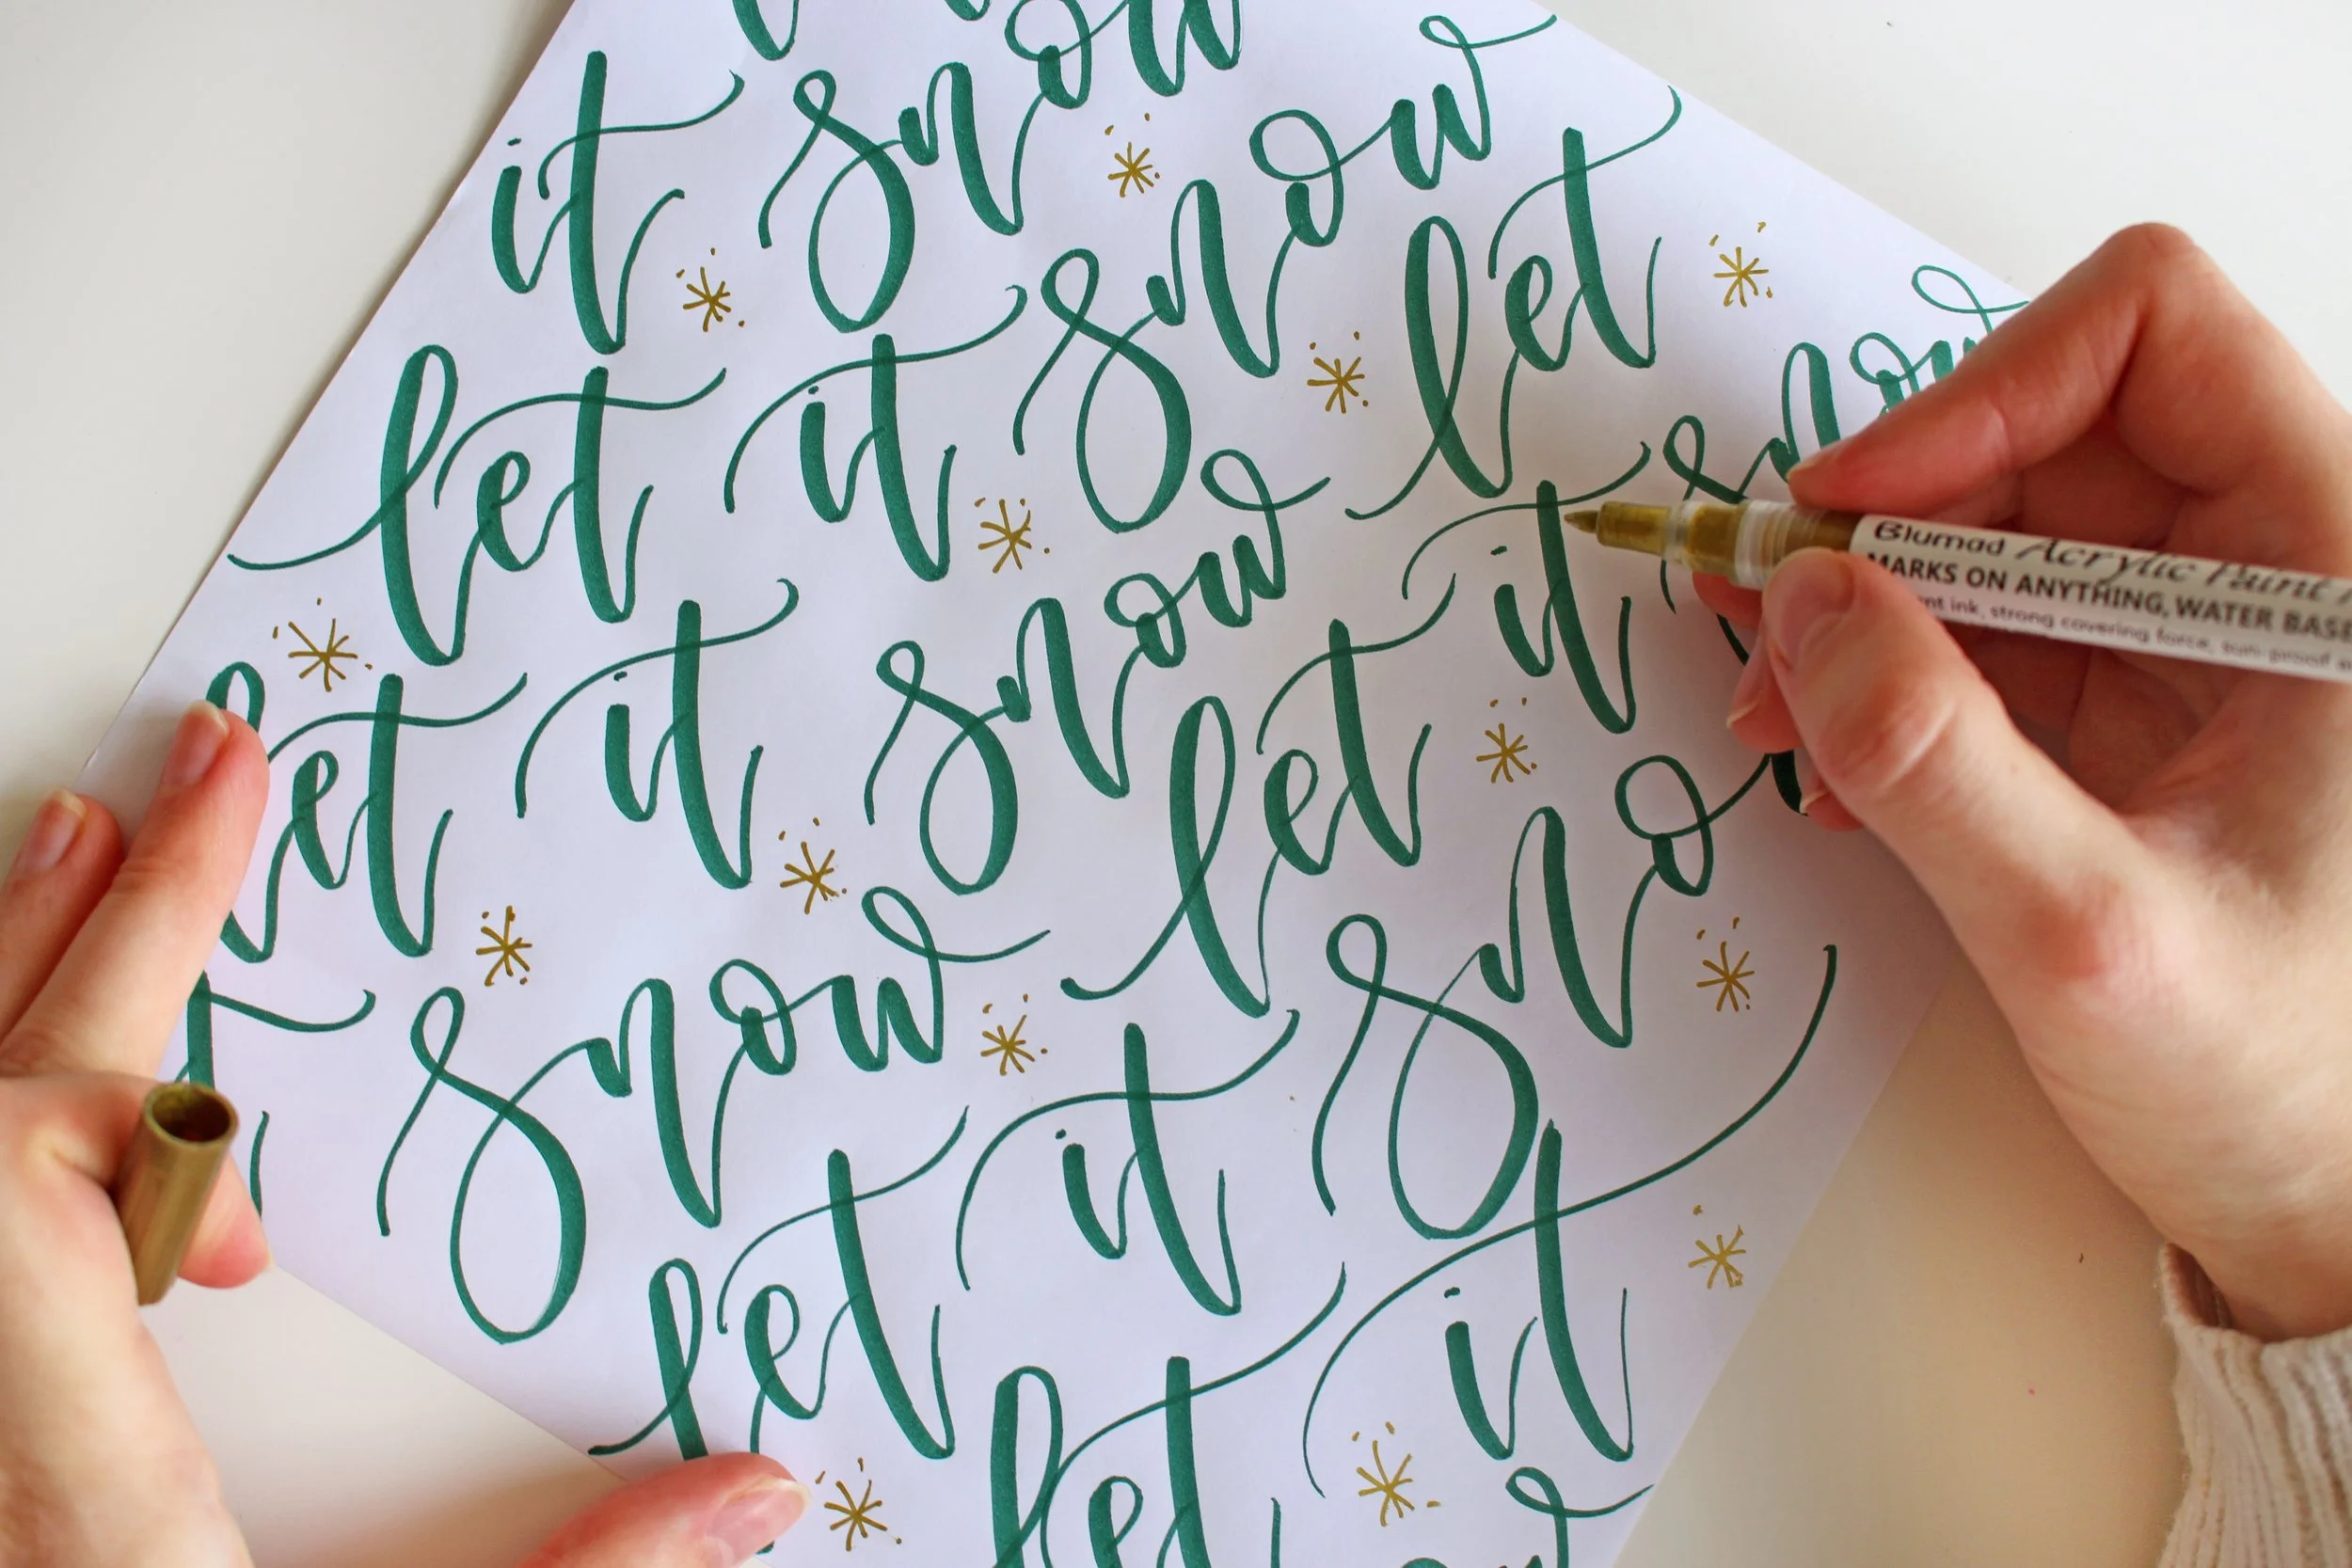 it snow
let it snow let
let it snow let it snow
snow let it snow
let it
let
snow
Blumad Acrylic Paint
MARKS ON ANYTHING, WATER BASE
nt ink, strong covering force, sun-proof